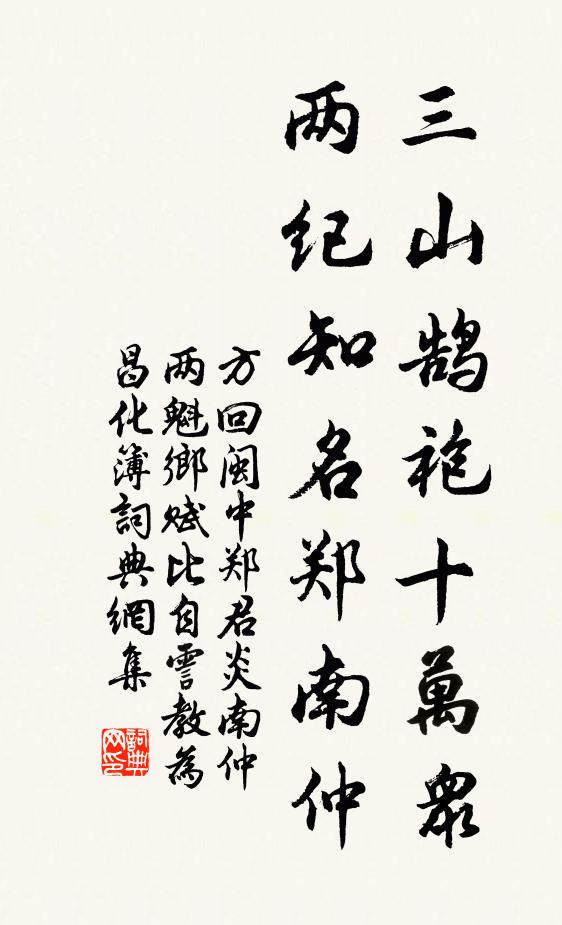 三山鹄袍十萬眾
两纪知名郑南仲
方回闽中郑君炎南仲
两魁鄉赋比自霅教為
昌化簿詞典網集
詞典网印